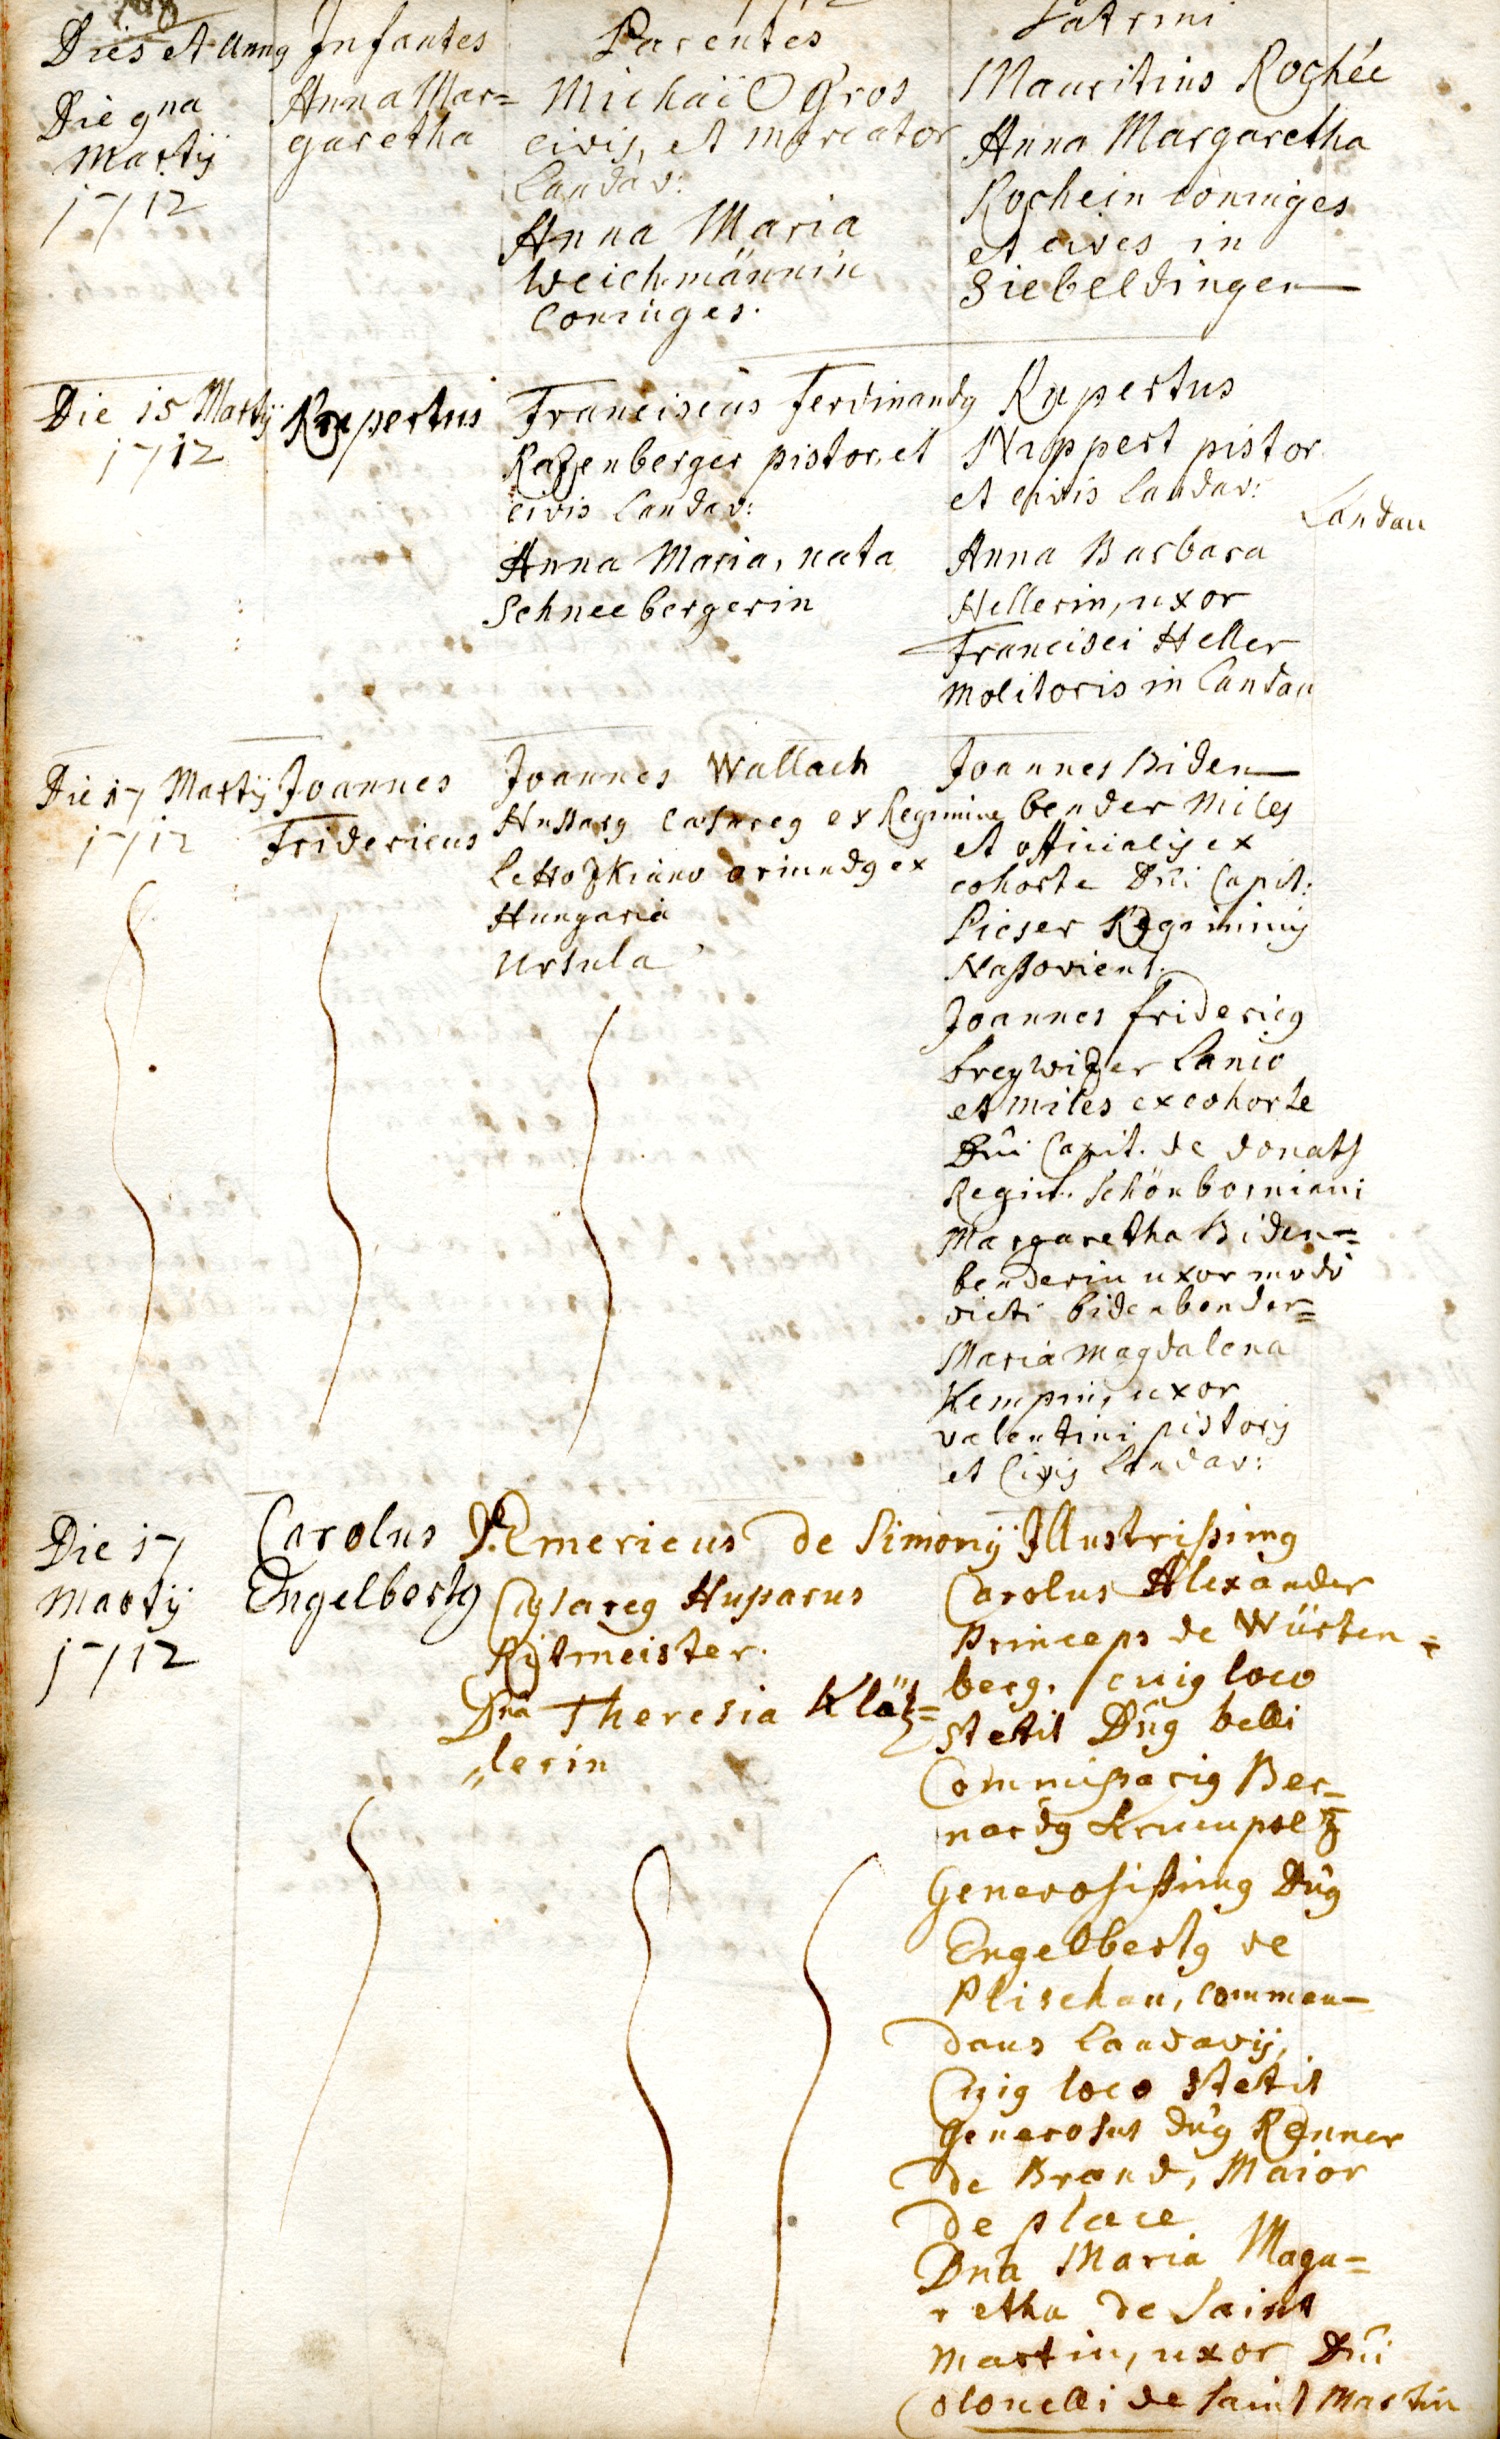 Dies et Annq
Infantes
Parentes
Patrini
Die 9na
Martij
1712
Anna Mar=
garetha
Michaël Gros
civis, et mercator
Landav:
Anna Maria
Weichmännin
Coniuges.
Mauritius Rochée
Anna Margaretha
Rochein coniuges
et cives in
Siebeldingen
Die 15 Martij
1712
Rupertus
Franciscus Ferdinandq
Razenberger pistor, et
civis Landav:
Anna Maria, nata
Schneebergerin
Rupertus
Nuppert pistor
et civis Landav:
Landau
Anna Barbara
Hellerin, uxor
Francisci Heller
Molitoris in Landau
Die 17 Martij
1712
Joannes
Fridericus
Joannes Wallach
Hussarq caesareq ex Regimine
Lehozkiano oriundq ex
Hungaria
Ursula
Joannes Biden
bender Miles
et officialis ex
cohorte Dni Capit:
Picser Regiminis
Naßoviens.
Joannes Fridericq
Freywizer Lanio
et miles ex cohorte
Dni Capit. de Donats
Regim. Schönborniani
Margaretha Biden=
benderin uxor modo
dicti bidenbender=
Maria Magdalena
Kempin, uxor
Valentini pistoris
et Civis Landav:
Die 17
Martij
1712
Carolus
Engelbertq
D. Emericus de Simonij
Caesareq Hußarus
Ritmeister.
Dna Theresia Kläz=
„lerin
Illustrißimq
Carolus Alexander
Princeps de Würten=
berg, cuiq loco
stetit Dnq belli
Commißariq Ber=
nardq Krumpolz
Generosißimq Dnq
Engelbertq de
Plischau, commen=
dans Landavij,
Cuiq loco stetit
Generosus Dnq Renner
de Brand, Maior
de place
Dna Maria Maga=
retha de Saint
Martin, uxor Dni
Colonelli de Saint Martin